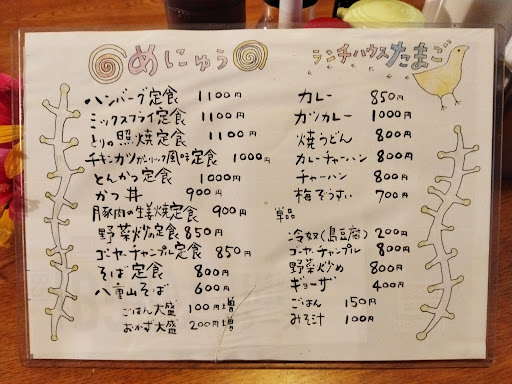 めにゅう
ハンバーグ定食 1100円
ミックスフライ定食 1100円
とりの照焼定食 1100円
チキンカツガーリック風味定食 1000円
とんかつ定食 1000円
かつ丼 900円
豚肉の生姜焼定食 900円
野菜炒め定食 850円
ゴーヤーチャンプル定食 850円
そば定食 800円
八重山そば 600円
ごはん大盛 100円増
おかず大盛 200円増
ランチハウスたまご
カレー 850円
カツカレー 1000円
焼うどん 800円
カレーチャーハン 800円
チャーハン 800円
梅ぞうすい 700円
単品
冷奴(島豆腐) 200円
ゴーヤーチャンプル 800円
野菜炒め 800円
ギョーザ 400円
ごはん 150円
みそ汁 100円